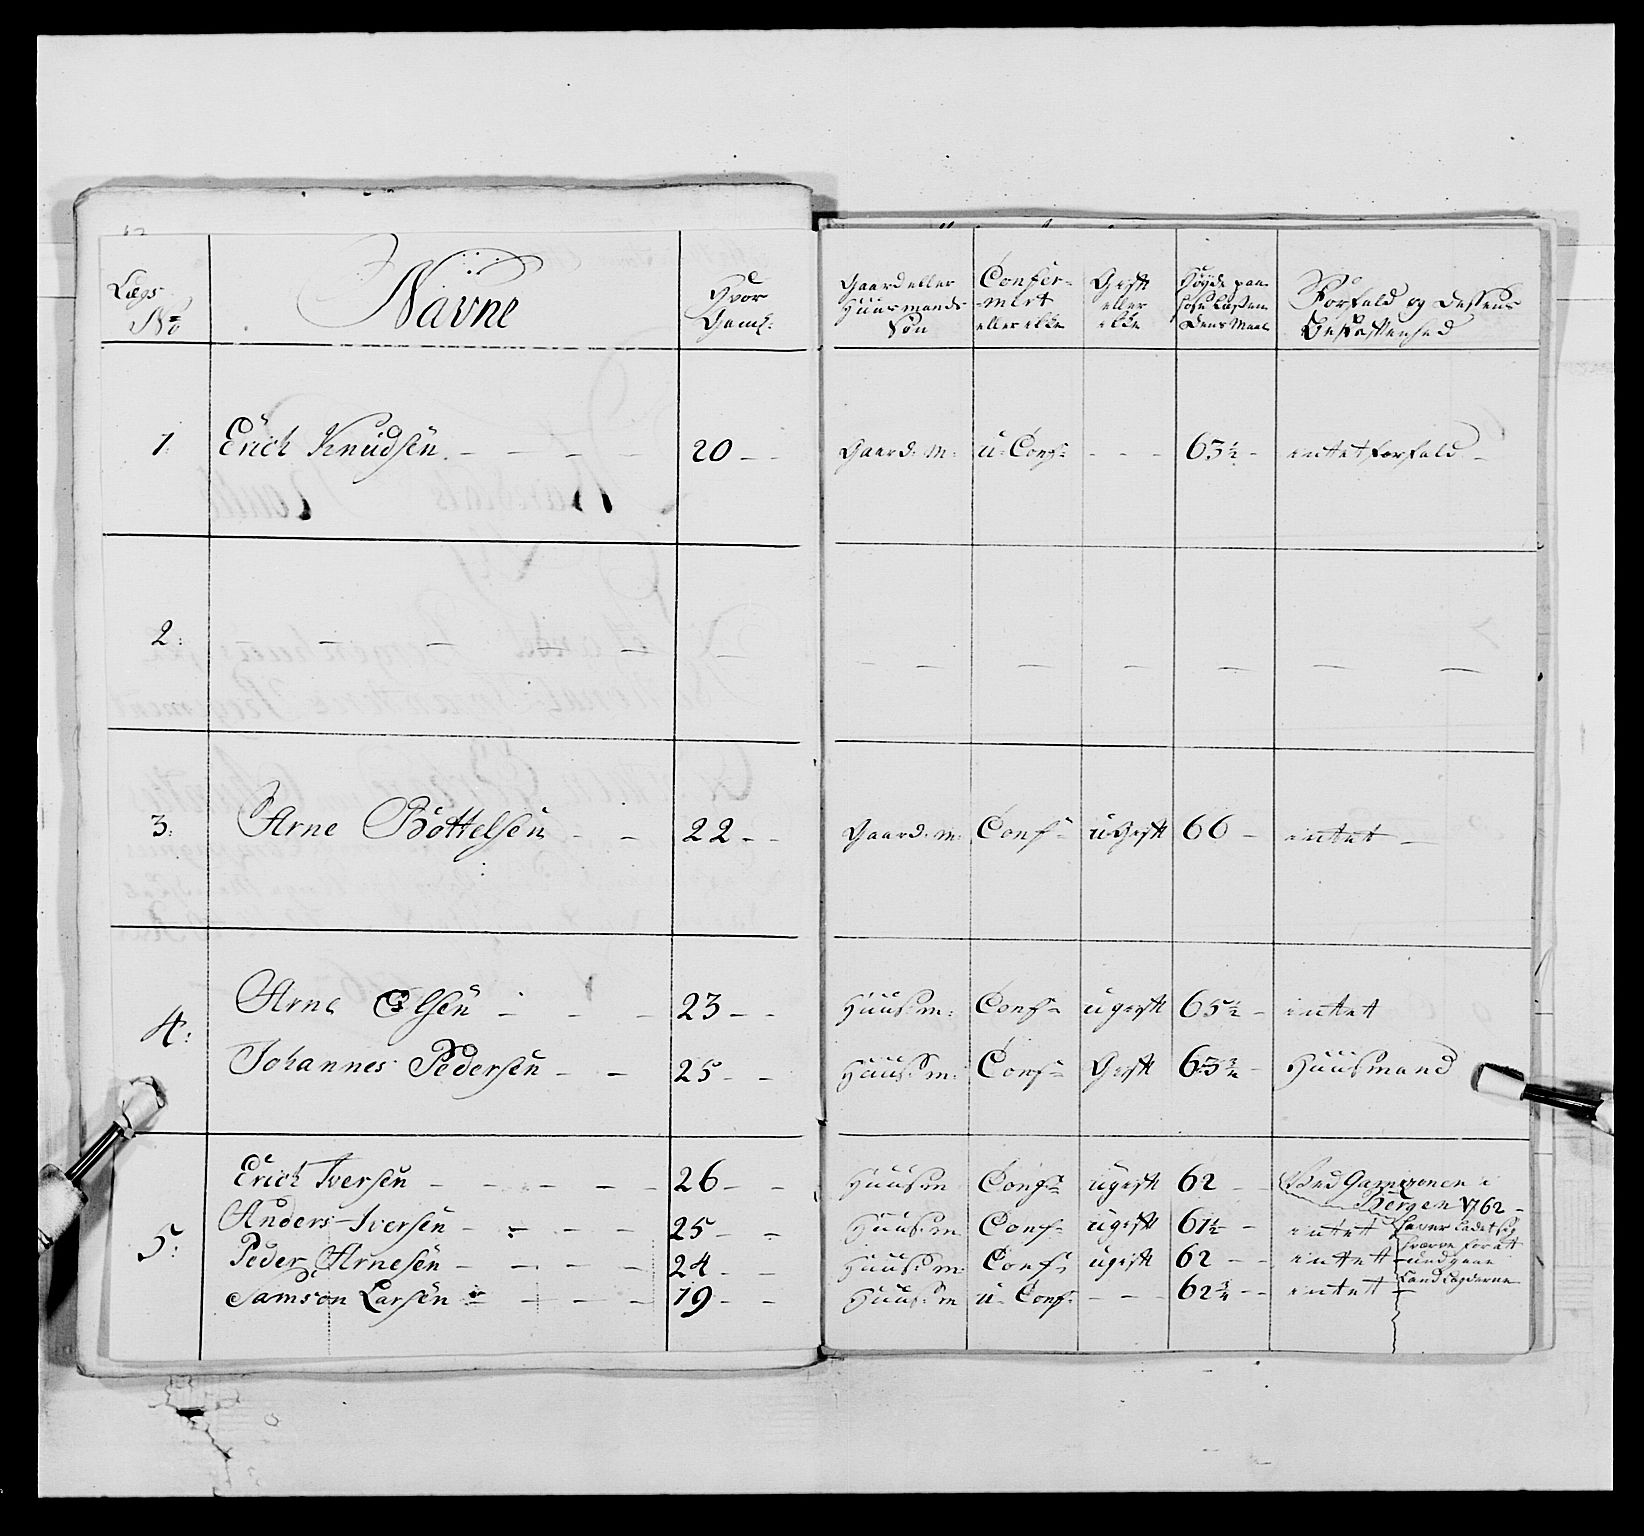 Lægs No
Navne
Hvor Gaml:
Gaard eller Huusmands Søn
Confir-mert eller ikke
Gift eller ikke
Høyde paa
Forfald og dessens Beskaffenhed
1: Erich Knudsen - - - - 20 - - Gaard: m: u: Conf: - - - 63½ - intet forfald -
2: - - - - - - - - - - - -
3: Arne Bottelsen - - 22 - - Gaard: m: Conf: ugift 66 - intet -
4: Arne Olsen - - - 23 - - Huusm: Conf: ugift 65½ - intet
Johannes Pedersen - - 25 - - Huus: m: Conf: Gift 63¾ - Huusmand
5: Erich Iversen - - - - - 26 - - Huusm Conf: ugift 62 - - Ved Garnisonen i Bergen 1762 -
Anders Iversen - - - - 25 - - Huus: m Conf: ugift 61½ - intet
Peder Arnesen - - - - 24 - - Huus: m: Conf: ugift 62 - - intet
Samson Larsen - - - - 19 - - Huus: m u: Conf: - - - 62¾ - - intet
haver ladet sig hverve for at undgaae Land